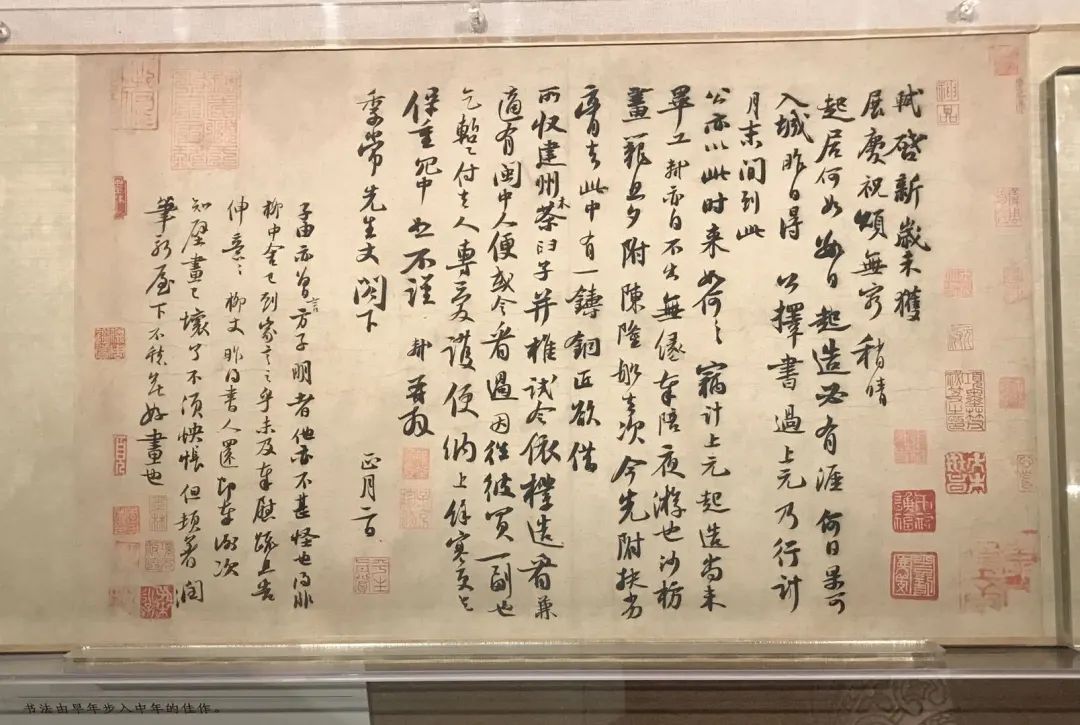 軾啓新歲未獲
展慶祝頌無窮稍晴
起居何如數日起造必有涯何日果可
入城昨日得公擇書過上元乃行計
月末間到此
公亦以此時來如何々竊計上元起造尚未
畢工軾亦自不出無緣奉陪夜游也沙枋
畫籠旦夕附陳隆船去次今先附扶劣
膏去此中有一鑄銅匠欲借
所收建州木茶臼子并椎試令依樣造看兼
適有閩中人便或令看過因往彼買一副也
乞暫付去人專愛護便納上餘寒更乞
保重冗中恕不謹軾再拜
季常先生丈閣下 正月二日
子由亦曾言方子明者他亦不甚怪也得非
柳中舍已到家言之乎未及奉慰疏且告
伸意々柳丈昨得書人還即奉謝次
知壁畫已壞了不須怏悵但頓著潤
筆新屋下不愁無好畫也
书法由早年步入中年的佳作。